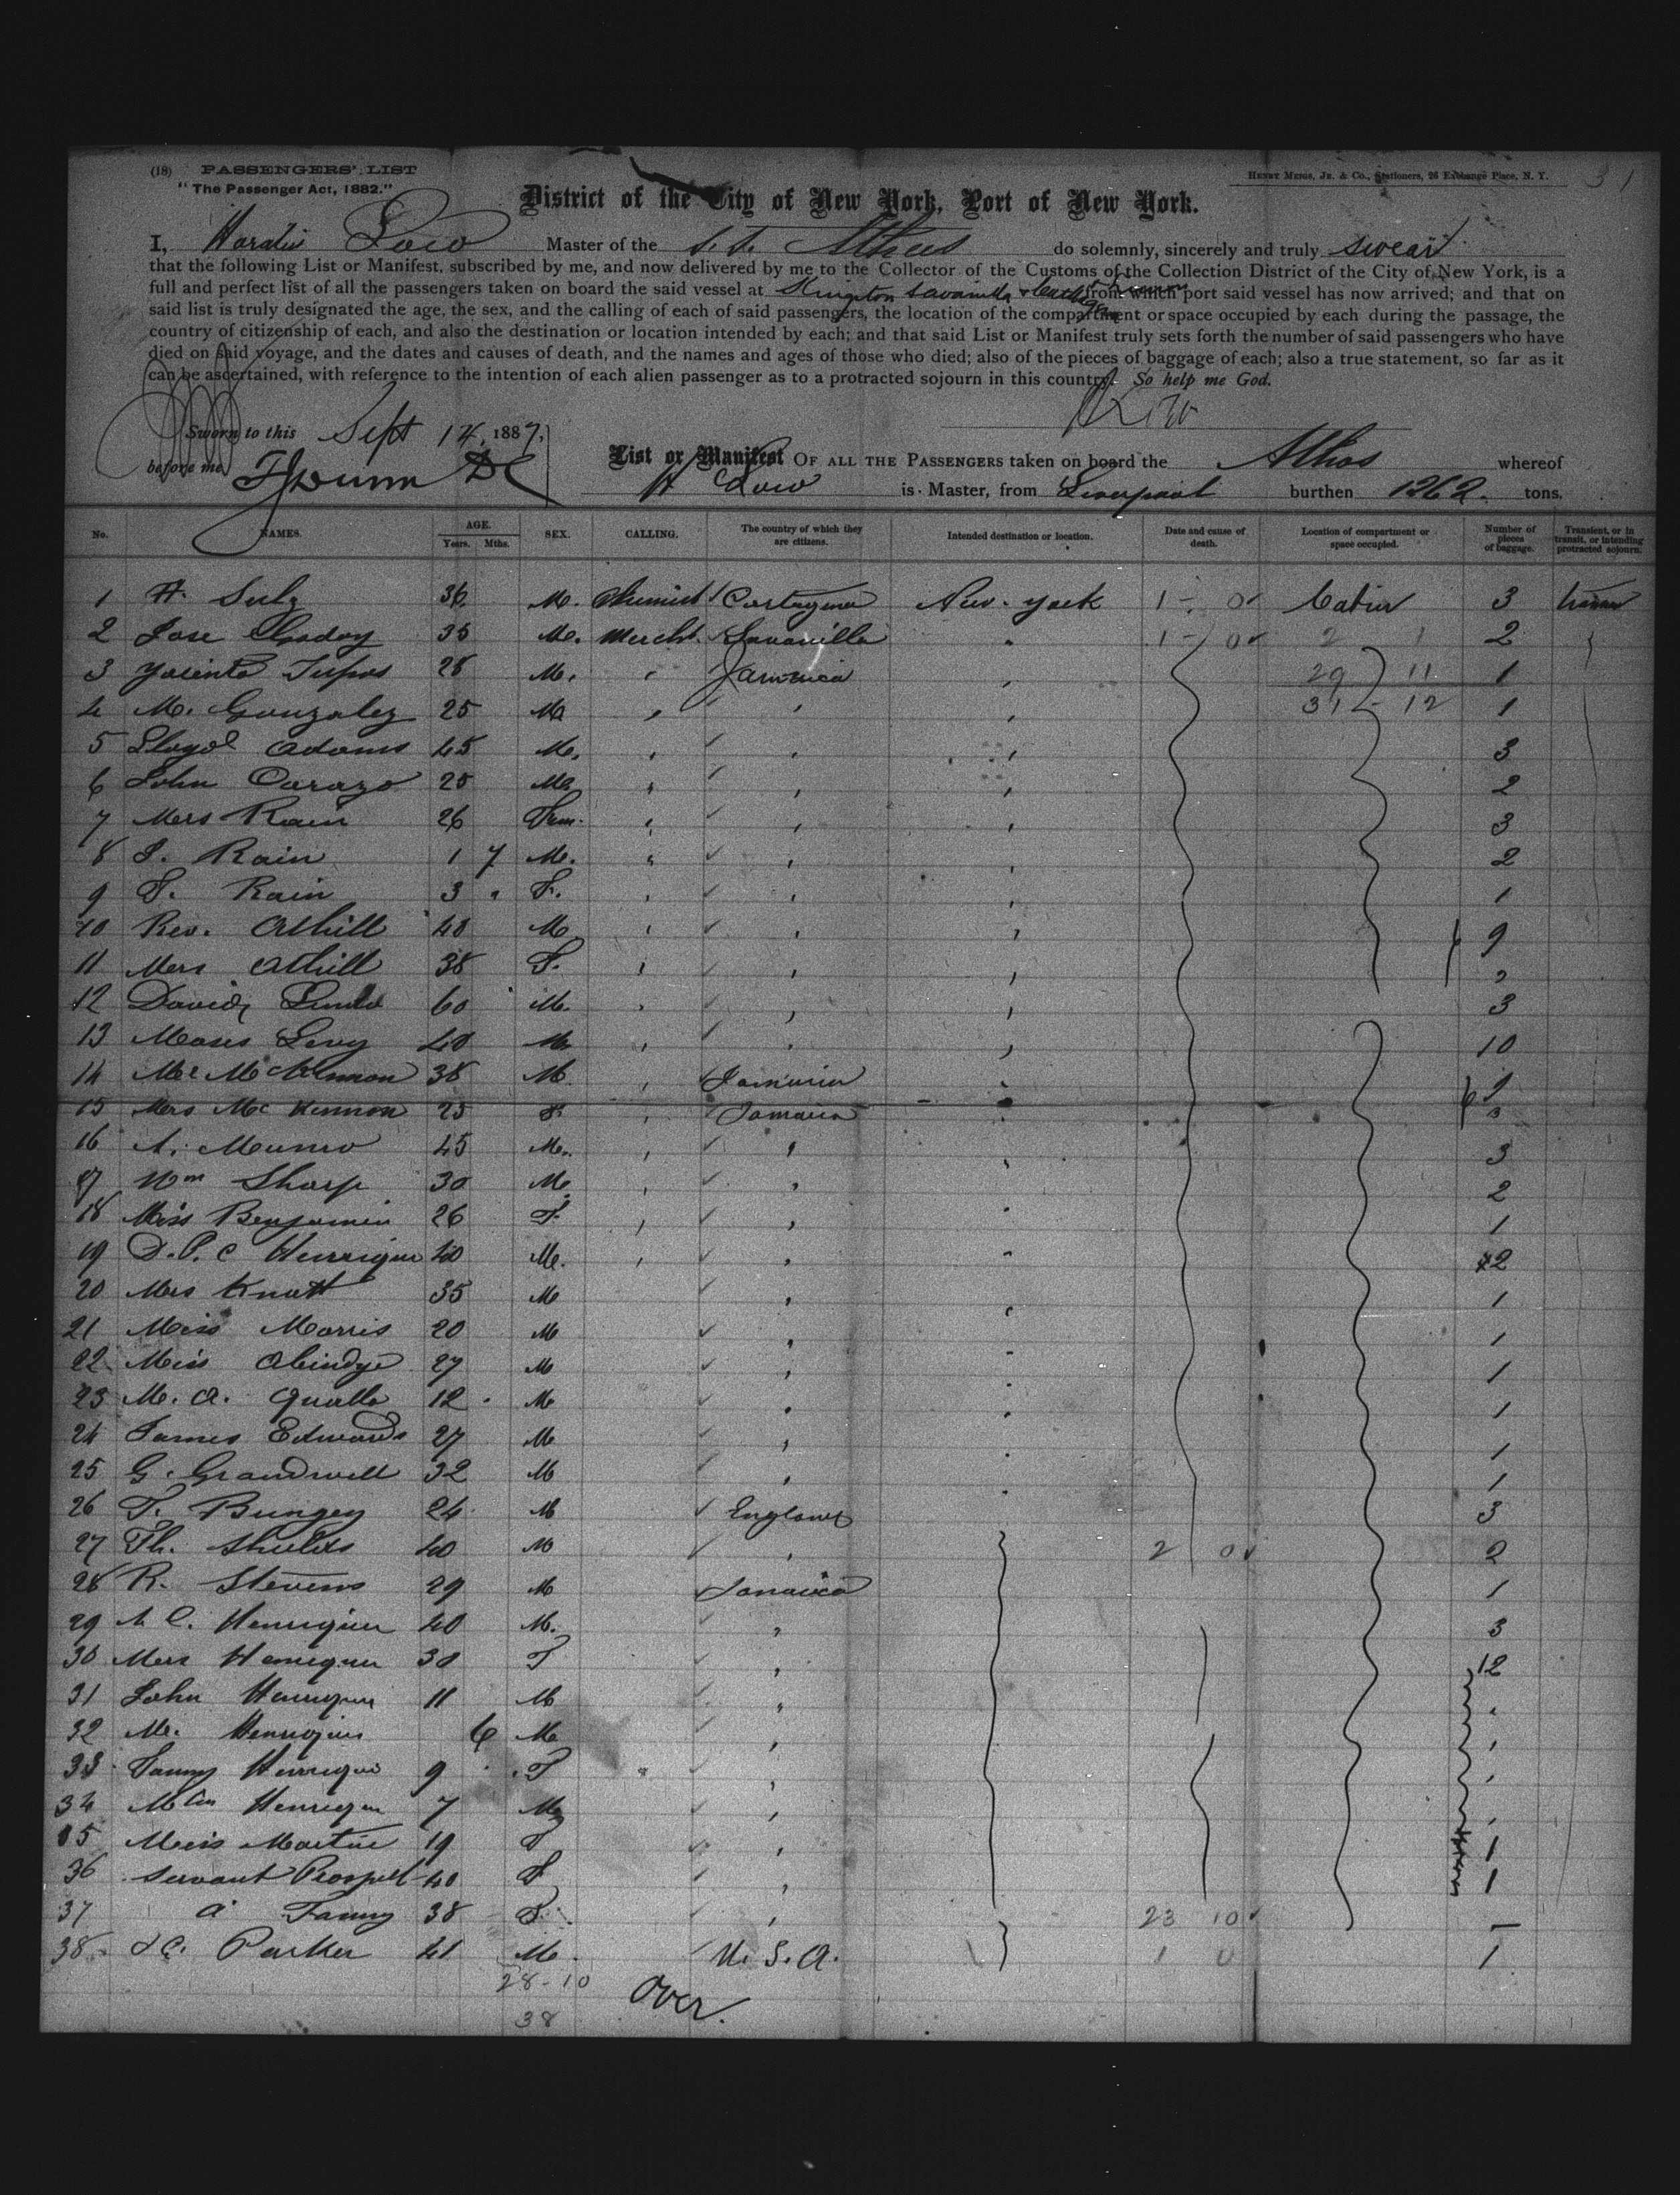 (18) PASSENGERS' LIST
"The Passenger Act, 1882."
HENRY MEIGS, JR. & CO., Stationers, 26 Exchange Place, N. Y.
31
District of the City of New York, Port of New York.
I, Low Master of the S.S. Athos do solemnly, sincerely and truly swear
that the following List or Manifest, subscribed by me, and now delivered by me to the Collector of the Customs of the Collection District of the City of New York, is a
full and perfect list of all the passengers taken on board the said vessel at Kingston Savanilla & from which port said vessel has now arrived; and that on
said list is truly designated the age, the sex, and the calling of each of said passengers, the location of the compartment or space occupied by each during the passage, the
country of citizenship of each, and also the destination or location intended by each; and that said List or Manifest truly sets forth the number of said passengers who have
died on said voyage, and the dates and causes of death, and the names and ages of those who died; also of the pieces of baggage of each; also a true statement, so far as it
can be ascertained, with reference to the intention of each alien passenger as to a protracted sojourn in this country. So help me God.
H Low
Sworn to this Sept 14, 1887,
before me, DC
List or Manifest OF ALL THE PASSENGERS taken on board the Athos whereof
H Low is Master, from Liverpool burthen 1262 tons.
No. NAMES. AGE. Years. Mths. SEX. CALLING. The country of which they are citizens. Intended destination or location. Date and cause of death. Location of compartment or space occupied. Number of pieces of baggage. Transient, or in transit, or intending protracted sojourn.
1 H. 36 M. Chemist Cartagena New-York 1 - 0 Cabin 3
2 Jose Godoy 35 M. Mercht. Savanilla " 1 - 0 2 1 2
3 28 M. " Jamaica " 29 11 1
4 M. Gonzalez 25 M " " " 31 - 12 1
5 Lloyd Adams 45 M. " " " 3
6 John Carazo 25 M " " " 2
7 Mrs Rain 26 Fem. " " " 3
8 J. Rain 1 7 M. " " " 2
9 F. Rain 3 " F. " " " 1
10 Rev. Athill 40 M " " " 9
11 Mrs Athill 38 F. " " "
12 David 60 M. " " " 3
13 Moses Levy 40 M " " " 10
14 Mr McKinnon 38 M. " Jamaica "
15 Mrs McKinnon 25 F. " Jamaica "
16 A. Munro 45 M. " " " 3
17 Wm Sharp 30 M. " " " 2
18 Miss Benjamin 26 F. " " " 1
19 D. P. C Henriques 40 M. " " " 2
20 Mrs Knott 35 M " " 1
21 Miss Morris 20 M " " 1
22 Miss 27 M " " 1
23 M. A. 12 M " " 1
24 James Edwards 27 M " " 1
25 G. Grandwell 32 M " " 1
26 T. Bungey 24 M England 3
27 Th. Shields 40 M " 2 0 2
28 R. Stevens 29 M Jamaica 1
29 A C. Henriques 40 M. " 3
30 Mrs Henriques 30 F " 12
31 John Henriques 11 M " "
32 M. Henriques 6 M " "
33 Fanny Henriques 9 F " "
34 Henriques 7 M " "
35 Miss Martin 19 F " 1
36 Servant 40 F " 1
37 Fanny 38 F. " 23 10 -
38 Parker 41 M. U.S.A. 1 0 1
28-10
38
Over.